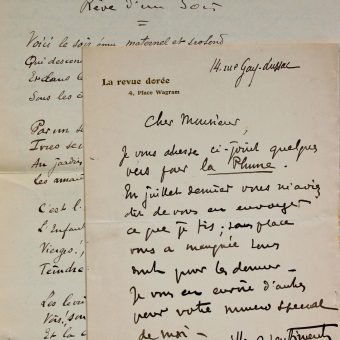 Rêve d'un Soir
Voici le soir ému maternel et profond
Qui descend
Et dans l
Sous les
Par un s
Ivres se
Au jardin
Les amant
C'est l
L'Enfant
Vierges,
Teindre
Les lèvr
Vois! son
Et la
14, rue Gay-Lussac
La revue dorée
4, Place Wagram
Cher Monsieur,
Je vous adresse ci-joint quelques
vers pour la Plume.
En juillet dernier vous m'aviez
dit de vous en envoyer
ce que je fis; sans place
vous a manquée sans
pour le dernier –
Je vous en envoie d'autres
pour votre numéro spécial
de moi –